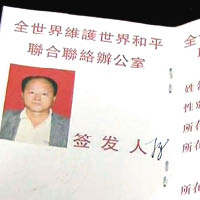 全世界維護世界和平
聯合聯絡辦公室
签发人
全世
姓名
性别
所在
所在
所在